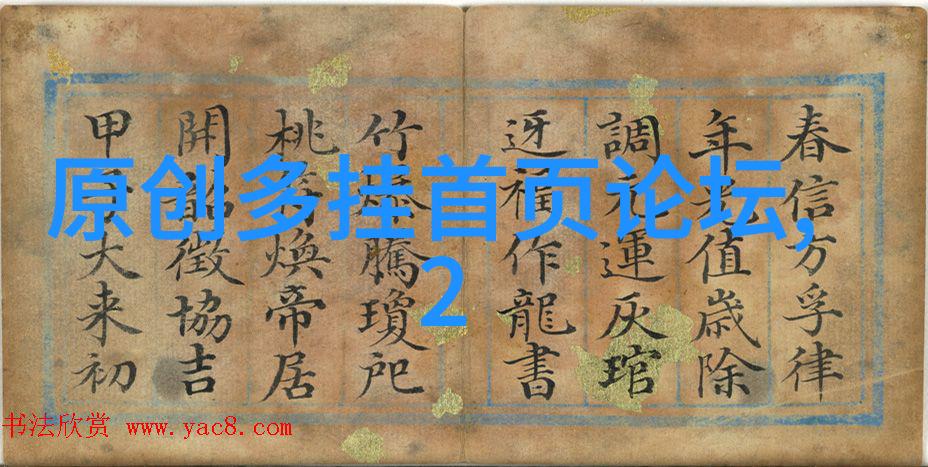 春信方孚律
年值歲除
調元運灰琯
迓福作龍書
竹爆騰瓊戺
桃符煥帝居
開韶徵協吉
甲子大来初
原创多挂首页论坛,
2
书法欣赏 www.yac8.com